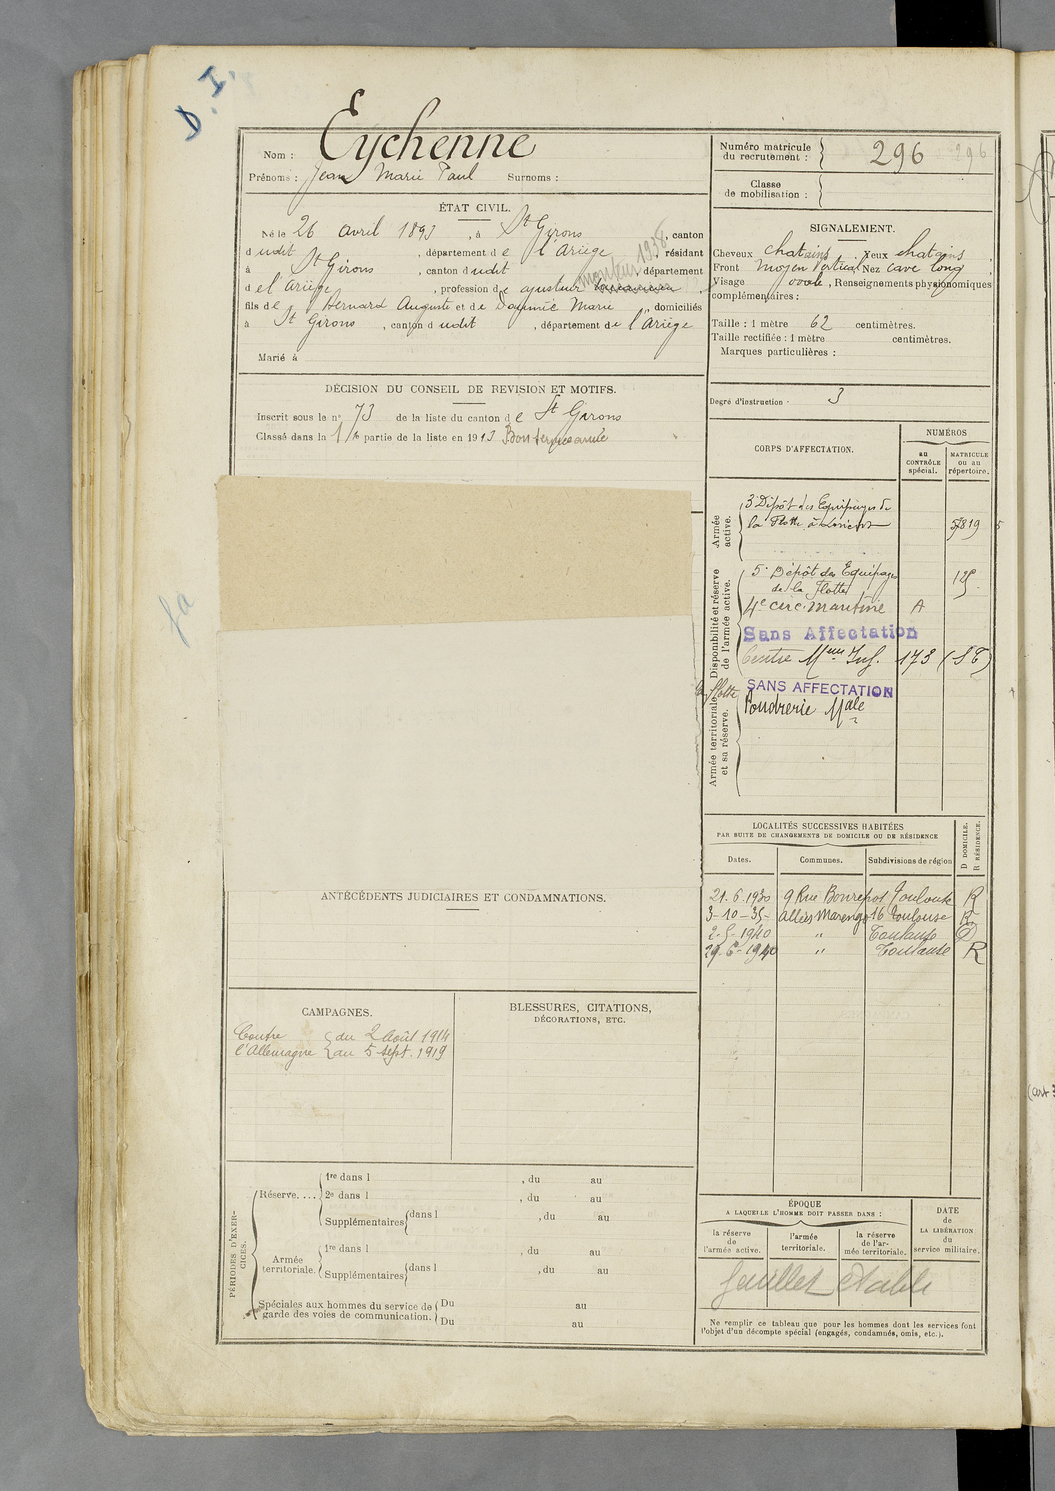 D. I.
Nom : Eychenne
Prénoms : Jean Marie Paul Surnoms :
Numéro matricule du recrutement : 296 296
Classe de mobilisation :
ÉTAT CIVIL.
Né le 26 avril 1893, à St Girons, canton
d udit, département de l'Ariège, résidant
à St Girons, canton dudit, département
d el Ariège, profession de ajusteur monteur 1938
fils de Bernard Auguste et de Doumic Marie, domiciliés
à St Girons, canton dudit, département de l'Ariège
Marié à
SIGNALEMENT.
Cheveux chatains, Yeux chatains
Front moyen vertical, Nez cave long
Visage ovale, Renseignements physionomiques
complémentaires :
Taille : 1 mètre 62 centimètres.
Taille rectifiée : 1 mètre centimètres.
Marques particulières :
Degré d'instruction : 3
DÉCISION DU CONSEIL DE REVISION ET MOTIFS.
Inscrit sous le n° 73 de la liste du canton de St Girons
Classé dans la 1re partie de la liste en 1913 Bon
CORPS D'AFFECTATION.
NUMÉROS
au CONTRÔLE spécial.
MATRICULE ou au répertoire.
Armée active.
3e Dépôt des Equipages de
la Flotte à Lorient 5819
Disponibilité et réserve de l'armée active.
5e Dépôt des Equipages
de la Flotte 125
4e circ. maritime A
Sans Affectation
Centre Mam Inf. 173 (SE)
la flotte
SANS AFFECTATION
Armée territoriale et sa réserve.
Poudrerie Nale
LOCALITÉS SUCCESSIVES HABITÉES
PAR SUITE DE CHANGEMENTS DE DOMICILE OU DE RÉSIDENCE
D DOMICILE.
R RÉSIDENCE.
Dates. Communes. Subdivisions de région
21.6.1930 9 Rue Bonrepos Toulouse R
3-10-35- Allées Marengo 16 Toulouse R
2.5.1940 " Toulouse D
29-6-1940 " Toulouse R
ANTÉCÉDENTS JUDICIAIRES ET CONDAMNATIONS.
CAMPAGNES.
Contre l'Allemagne
du 2 Août 1914
au 5 sept. 1919
BLESSURES, CITATIONS,
DÉCORATIONS, ETC.
PÉRIODES D'EXERCICES.
Réserve.... 1re dans l , du au
2e dans l , du au
Supplémentaires dans l , du au
Armée territoriale. 1re dans l , du au
Supplémentaires dans l , du au
Spéciales aux hommes du service de garde des voies de communication. Du au
Du au
ÉPOQUE
A LAQUELLE L'HOMME DOIT PASSER DANS :
la réserve de l'armée active.
l'armée territoriale.
la réserve de l'armée territoriale.
DATE de LA LIBÉRATION du service militaire.
feuillet établi
Ne remplir ce tableau que pour les hommes dont les services font
l'objet d'un décompte spécial (engagés, condamnés, omis, etc.).